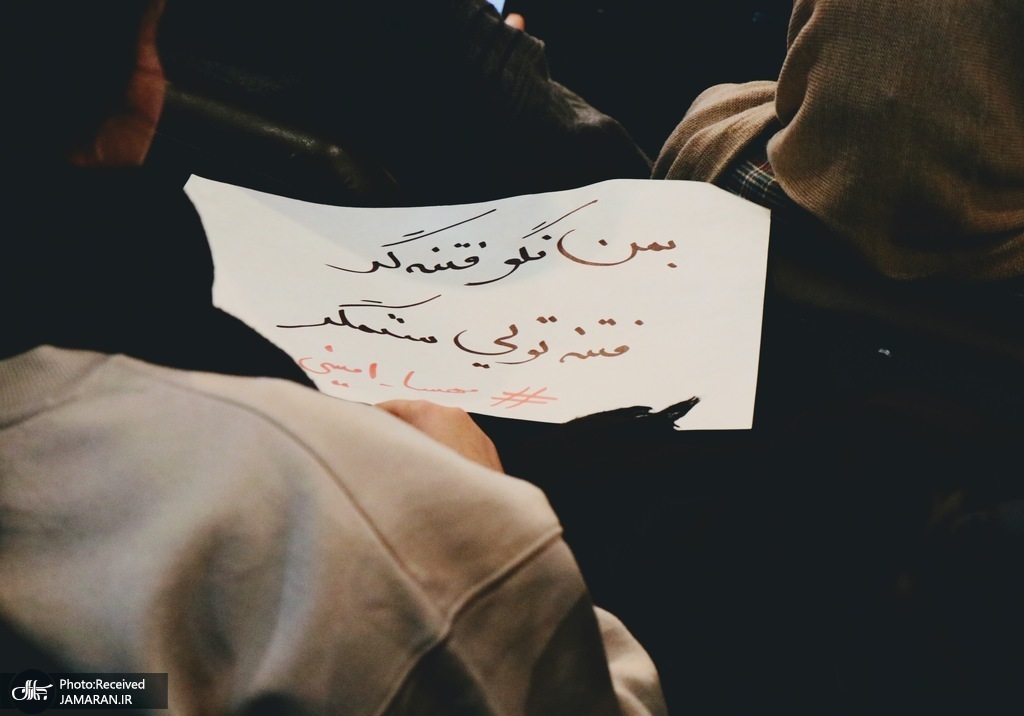 بمن نگو فتنه گر
فتنه تویی ستمگر
#مهسا_امینی
جماران
Photo:Received
JAMARAN.IR